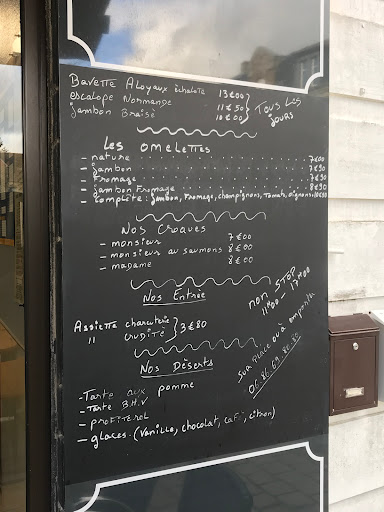 Bavette Aloyaux échalote 13€00
escalope Normande 11€50
jambon Braisé 10€00
Tous les
jours
Les omelettes
- nature . . . . . . . . . . . . 7€00
- jambon . . . . . . . . . . . . 7€90
- Fromage . . . . . . . . . . . . 7€90
- jambon Fromage . . . . . . . . . . . . 8€90
- complète: jambon, Fromage, champignons, Tomate, oignons
Nos Croques
- monsieur 7€00
- monsieur au saumons 8€00
- madame 8€00
non STOP
11H00 - 17H00
Nos Entrée
Assiette charcuterie
11 crudité } 3€80
Sur place ou à emporter
06.86.69.86.80
Nos Dèserts
- Tarte aux pomme
- Tarte B.H.V
- profiterol
- glaces. (vanille, chocolat, café, citron)